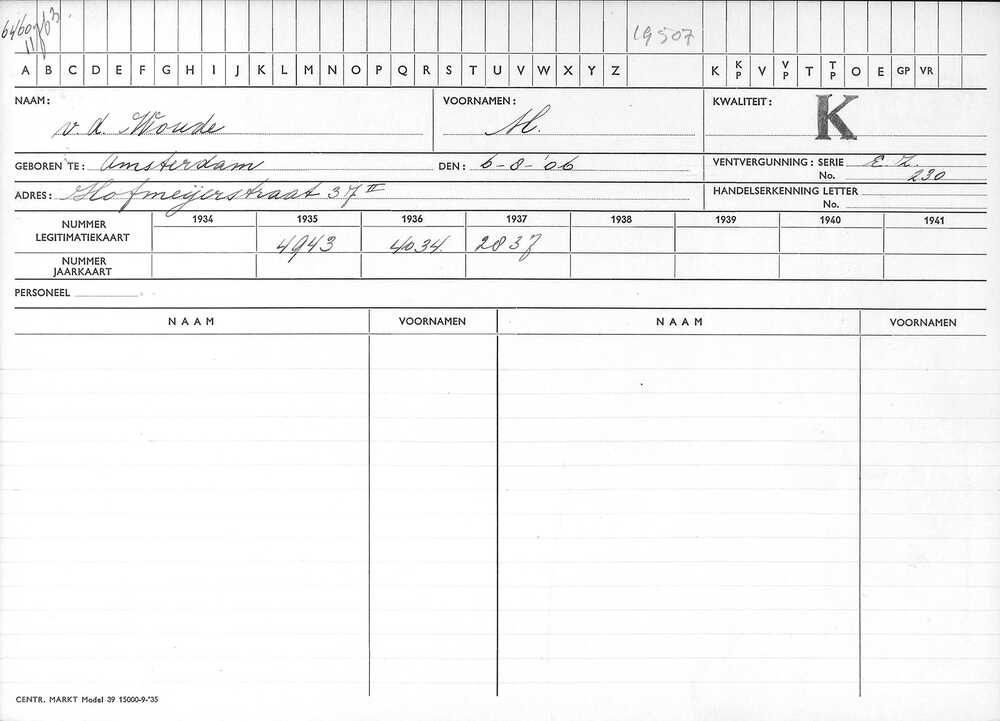 19507
A B C D E F G H I J K L M N O P Q R S T U V W X Y Z K KP V VP T TP O E GP VR
NAAM: v. d. Woude VOORNAMEN: M. KWALITEIT: K
GEBOREN TE: Amsterdam DEN: 6-8-'06 VENTVERGUNNING: SERIE E. Z.
No. 230
ADRES: Hofmeijerstraat 37 II HANDELSERKENNING LETTER
No.
NUMMER LEGITIMATIEKAART 1934 1935 1936 1937 1938 1939 1940 1941
4943 4034. 2837
NUMMER JAARKAART
PERSONEEL
NAAM VOORNAMEN NAAM VOORNAMEN
CENTR. MARKT Model 39 15000-9-'35